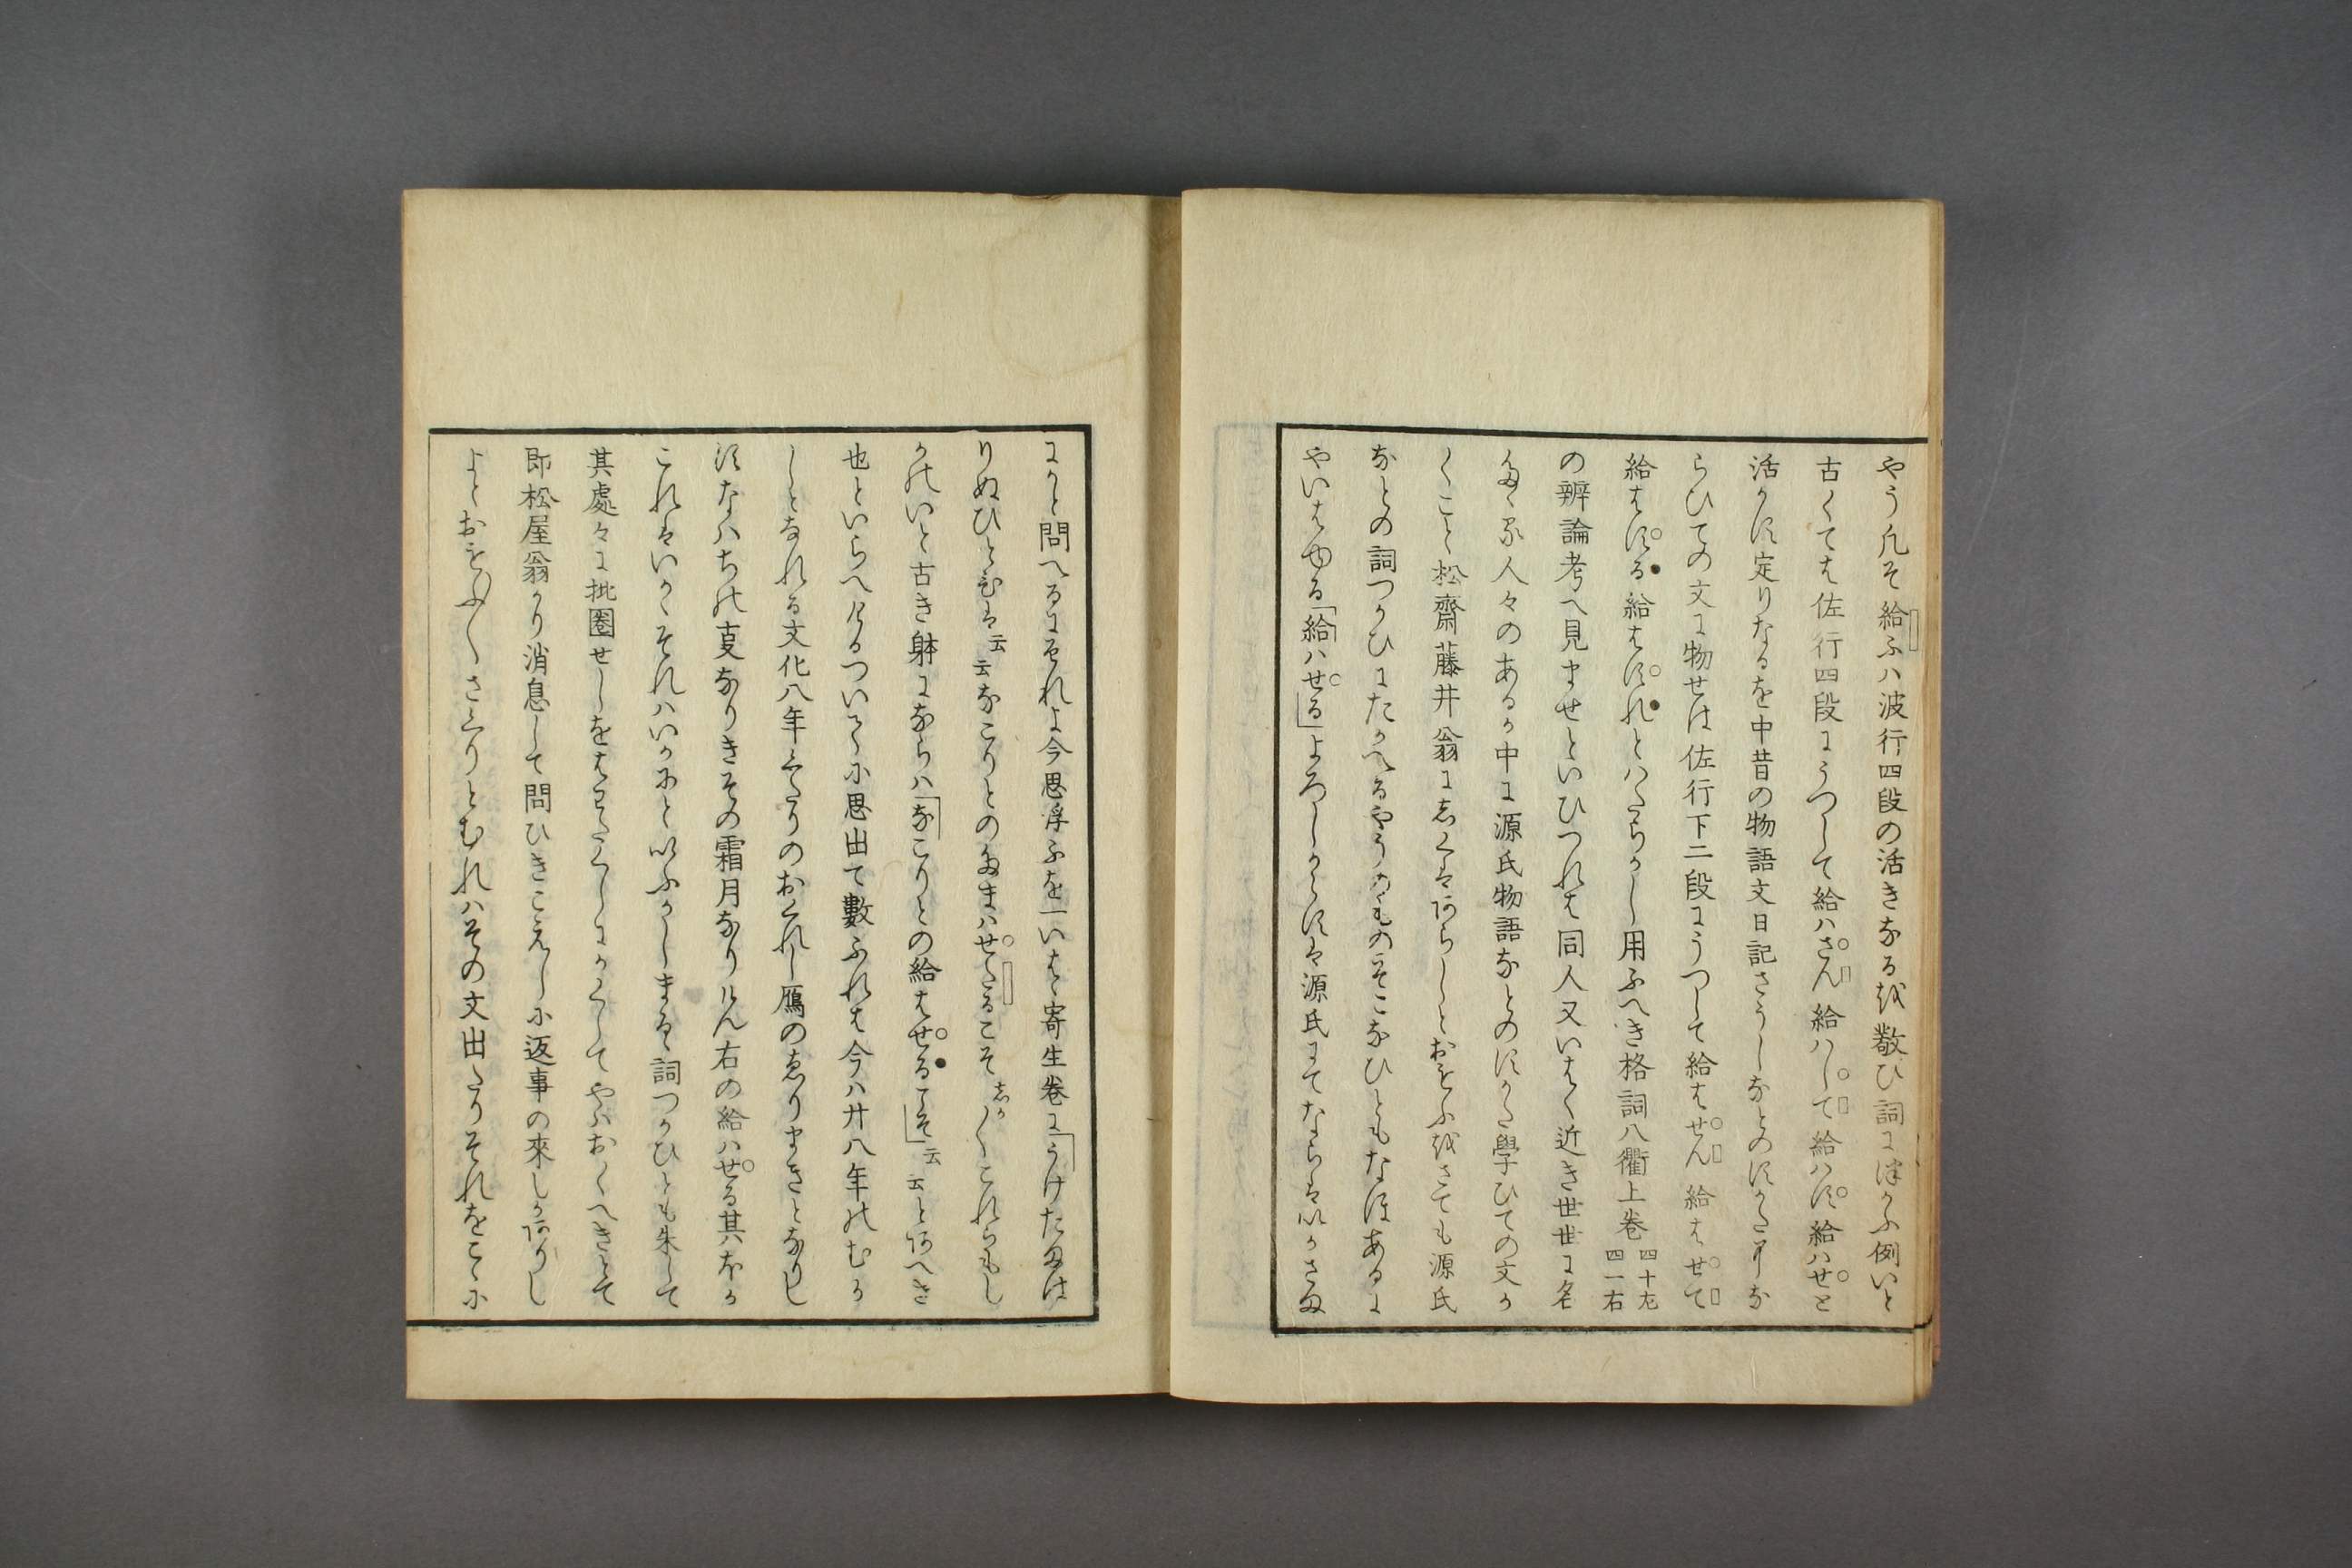 やう凡そ給ふハ波行四段の活きなる越敬ひ詞に使ふ例いと
古くては佐行四段にうつして給ハさん給ハして給ハす給ハせと
活かす定りなるを中昔の物語文日記さうしなとのすかたなら
らひての文に物せは佐行下二段にうつして給はせん給はせて
給はする給はすれとハたらかし用ふへき格詞八衢上巻四十左四一右
の辨論考へ見ませといひつれは同人又いはく近き世世に名
たゝる人々のあるか中に源氏物語なとのすかた學ひての文か
くこと松齋藤井翁にしくはあらしとおもふ越さても源氏
なとの詞つかひにたかへるやうのものそこなひともなほあるに
やいはゆる「給ハせる」よろしからすは源氏にてならはいかさま
にかと問へるにそれよ今思浮ふを一いはゝ寄生巻に「うけたまは
りぬひとひは云云なこりとのたまハせたるこそしか〳〵これらもし
かのいと古き躰にならハ「なこりとの給はせるこそ」云云とあへき
也といらへけるついてに思出て數ふれは今ハ廿八年のむか
しとなれる文化八年みたりのおくれし雁のゑりまきとなりし
すなハちの夏なりきその霜月なりけん右の給ハせる其ほか
これはいかゝそれハいかにといふかしまるゝ詞つかひとも朱して
其處々に批圏せしをはわたくしにかくしてやハおくへきとて
即松屋翁かり消息して問ひきこえしに返事の來しかありし
よくおもふ〳〵さくりとむれハその文出たりそれをこゝに